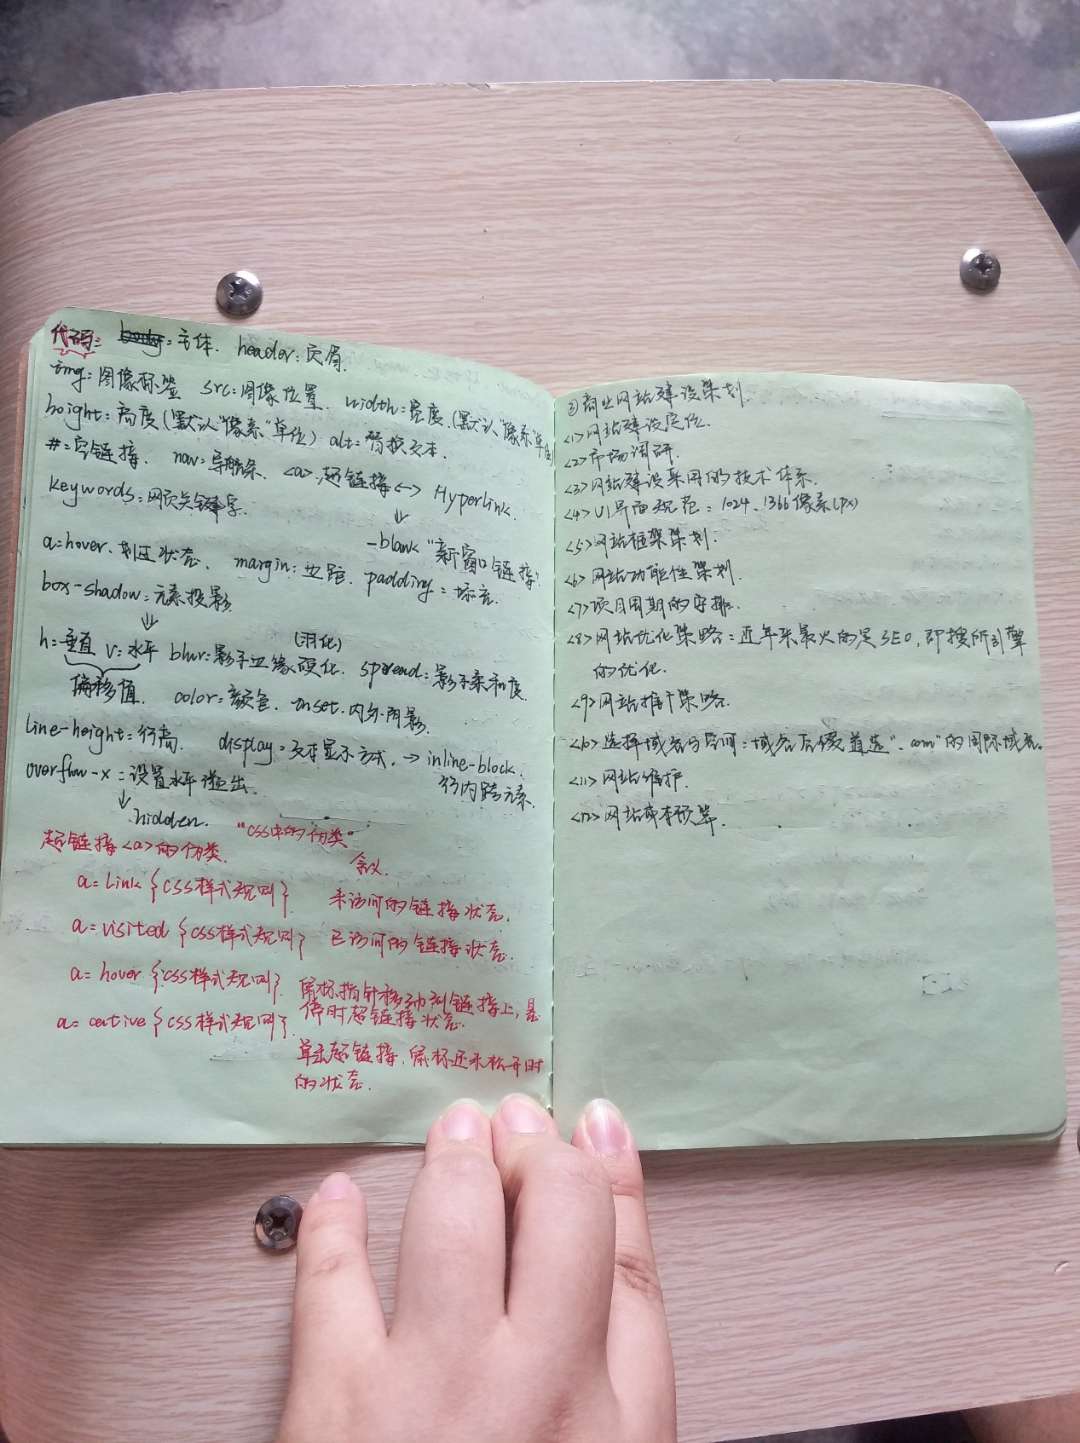 代码: body: 主体. header: 页眉.
img: 图像标签 src: 图像位置. width: 宽度. (默认"像素"单位
height: 高度 (默认"像素"单位) alt: 替换文本.
#: 空链接. nav: 导航条. <a>: 超链接 <-> Hyperlink.
keywords: 网页关键字. ↓
-blank "新窗口链接"
a:hover. 划过状态. margin: 边距. padding: 填充.
box-shadow: 元素投影
↓
h: 垂直 v: 水平 blur: 影子边缘硬化. (羽化) spread: 影子柔和度
偏移值. color: 颜色. inset. 内外阴影.
line-height: 行高. display: 文本显示方式. → inline-block.
overflow-x: 设置水平溢出. 行内跨元素.
↓ hidden.
"CSS中的伪类"
超链接<a>的伪类. 含义.
a: Link {CSS样式规则} 未访问的链接状态.
a: visited {CSS样式规则} 已访问的链接状态.
a: hover {CSS样式规则}. 鼠标指针移动到链接上, 悬
停时超链接状态.
a: active {CSS样式规则}.
单击超链接, 鼠标还未松开时
的状态.
③ 商业网站建设策划.
<1>网站建设定位.
<2>市场调研.
<3>网站建设采用的技术体系.
<4>UI界面规范: 1024、1366像素(px)
<5>网站框架策划.
<6>网站功能性策划.
<7>项目周期的安排.
<8>网站优化策略: 近年来最火的是SEO, 即搜所引擎
的优化.
<9>网站推广策略.
<10>选择域名与空间: 域名后缀首选".com"的国际域名.
<11>网站维护.
<12>网站成本预算.